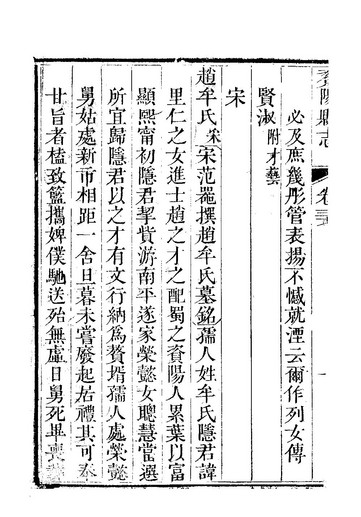 資陽縣志 卷三
必及庶幾彤管表揚不憾就湮云爾作列女傳
賢淑附才藝
宋
趙牟氏宋宋范嚣撰趙牟氏墓銘孺人姓牟氏隱君諱
里仁之女進士趙之才之配蜀之資陽人累葉以富
顯熙甯初隱君挈貲游南平遂家榮懿女聰慧當選
所宜歸隱君以之才有文行納爲贅壻孺人處榮懿
舅姑處新市相距一舍旦暮未嘗廢起居禮其可奉
甘旨者榼致籃攜婢僕馳送殆無虛日舅死畢喪